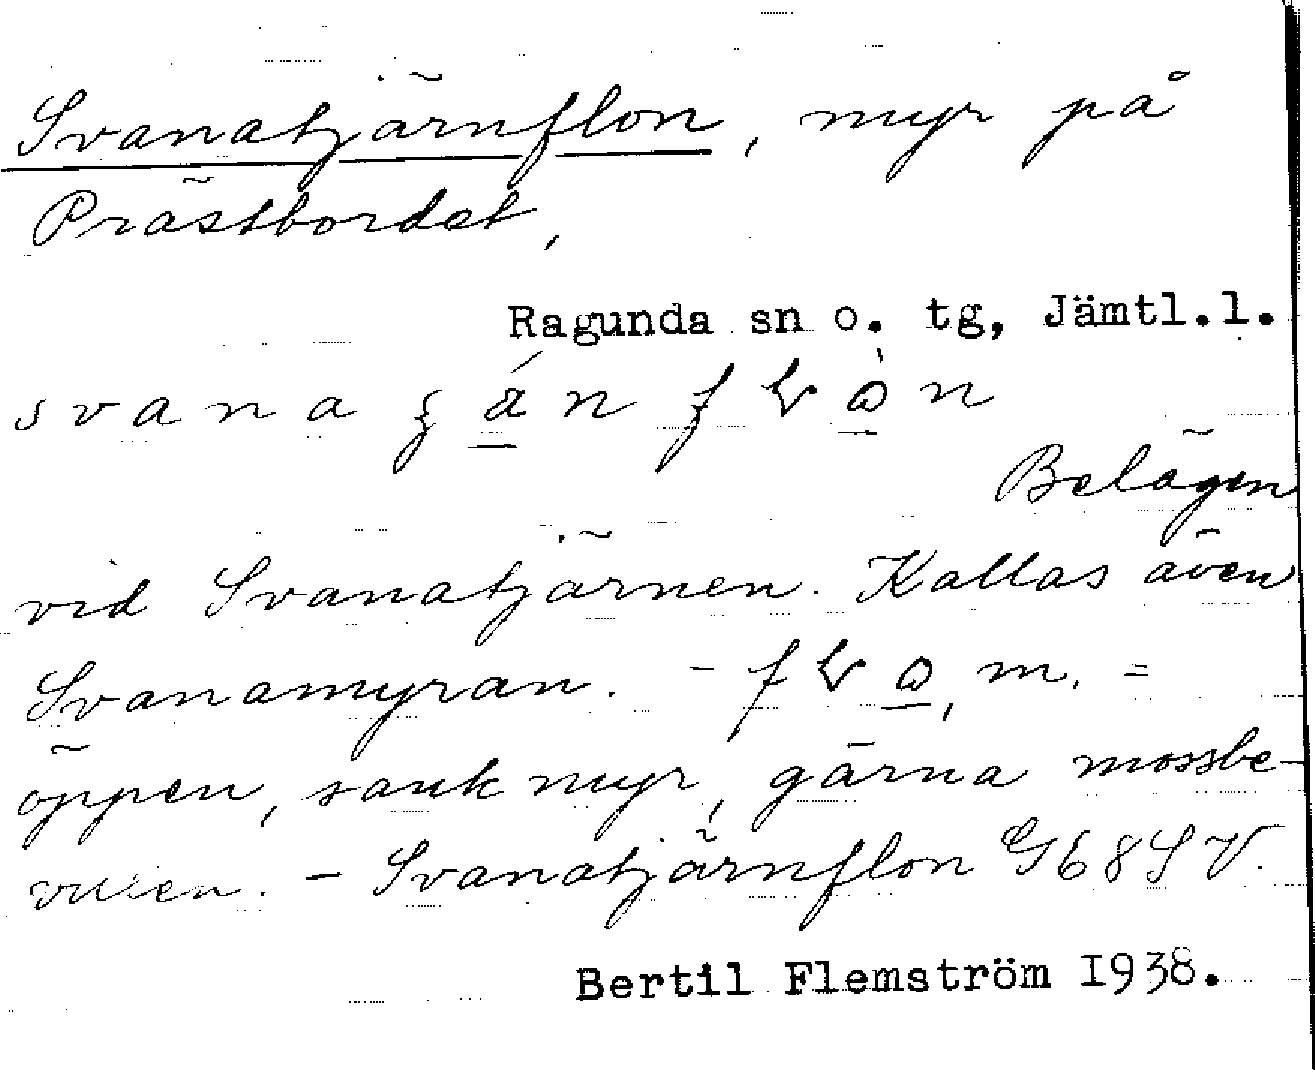 Svanatjärnflon, myr på
Prästbordet,
Ragunda sn o. tg, Jämtl.l.
svana
Belägen
vid Svanatjärnen. Kallas även
Svanamyran. - m. =
öppen, sank myr, gärna mossbe-
vuxen. - Svanatjärnflon G68SV.
Bertil Flemström 1938.